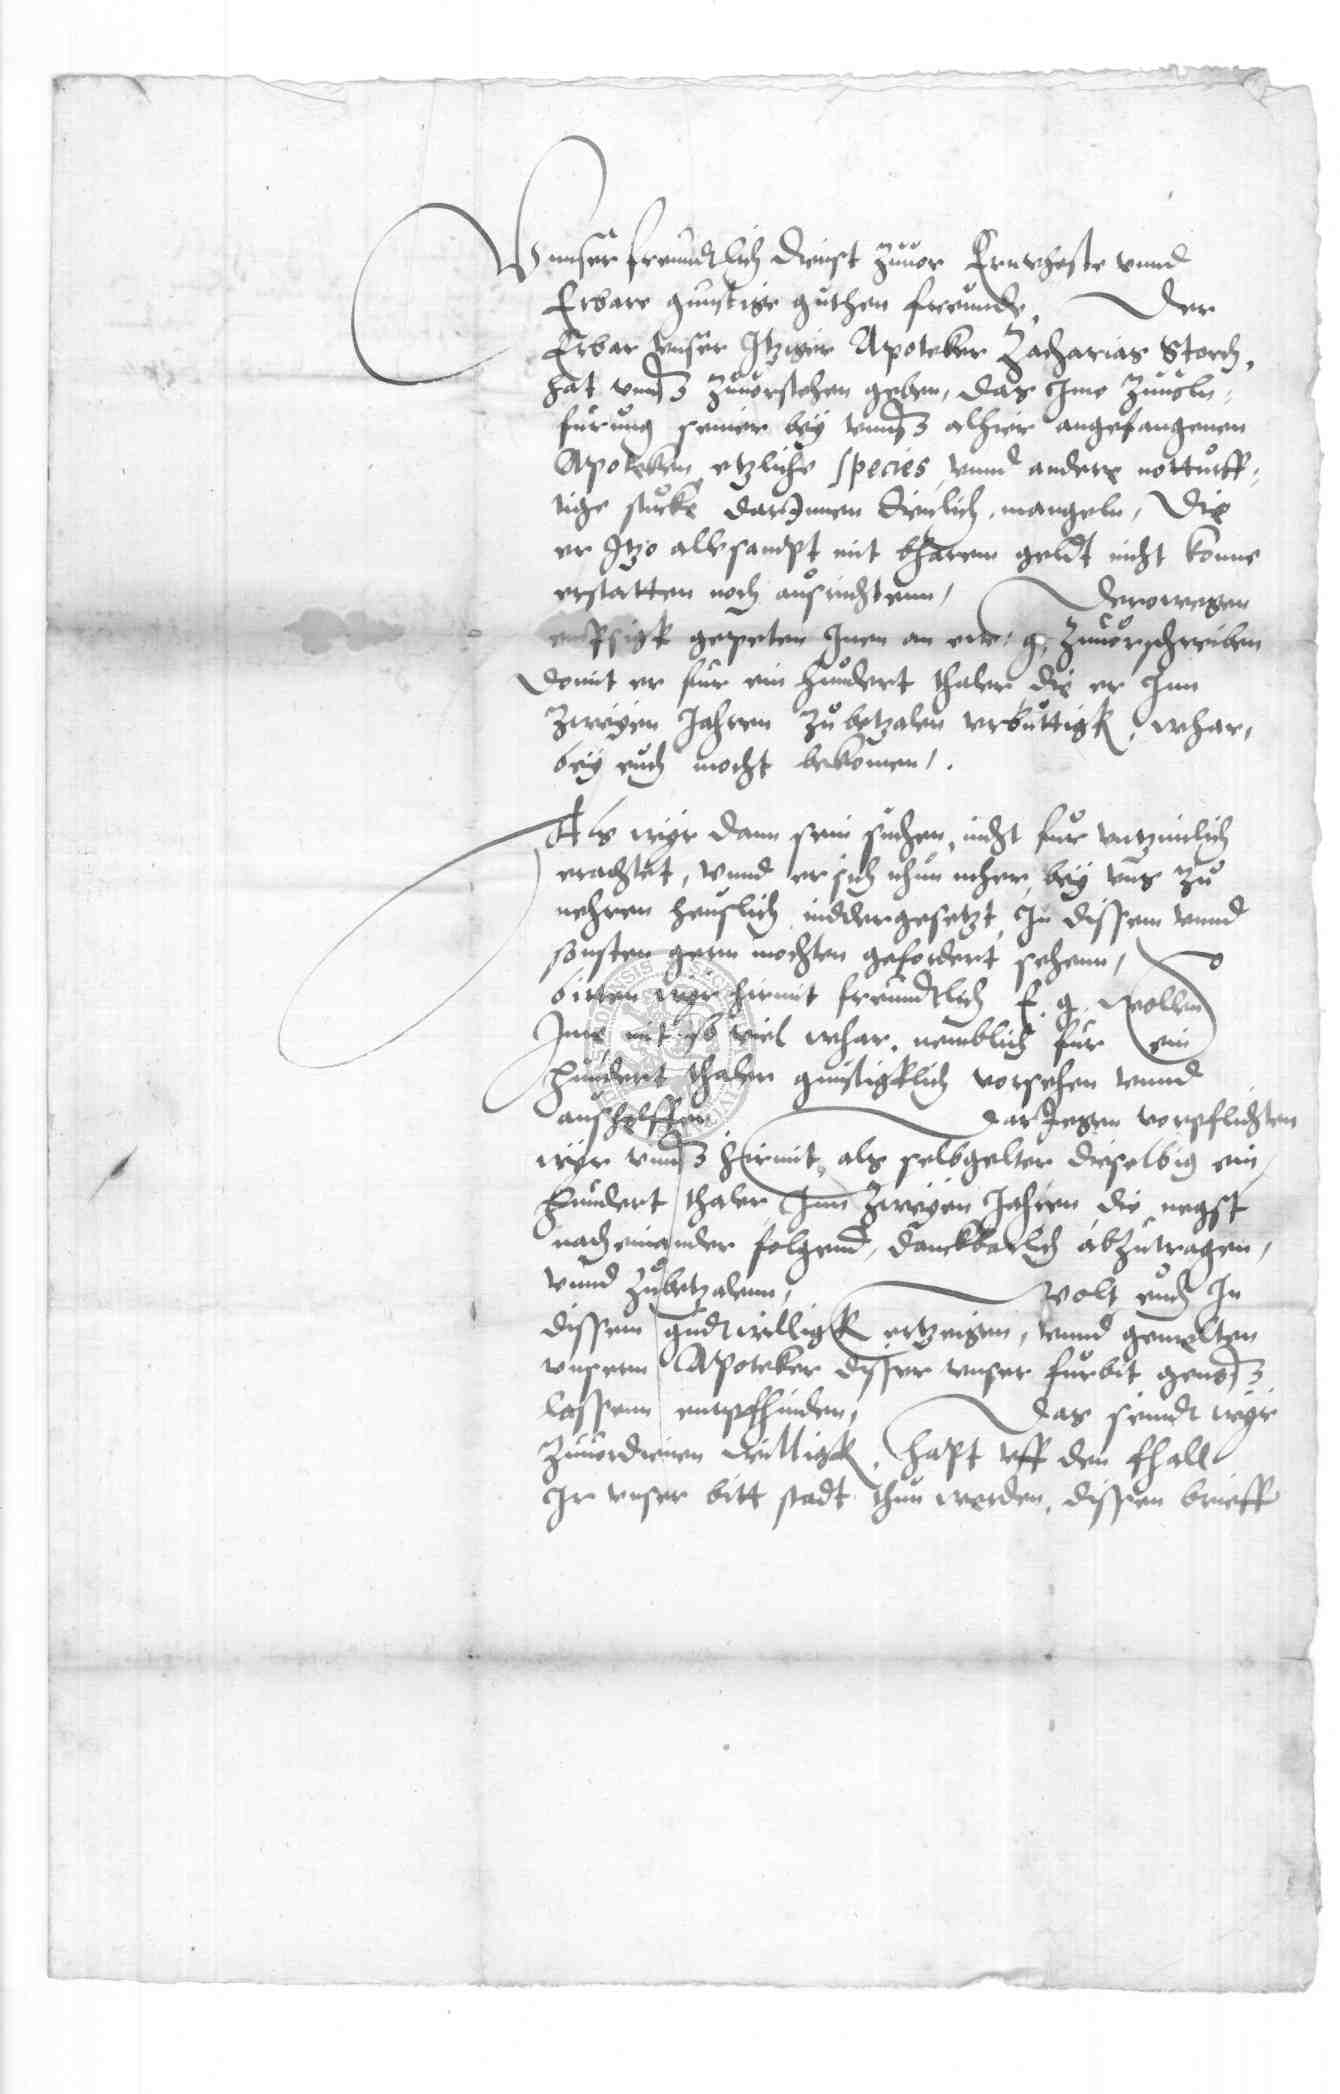 Vnnser freundtlich dienst zuuor Ernvheste vnnd
Erbare gunstige guthen freunde. Der
Erbar vnser Itziger Apoteker Zacharias Storch,
hat vnnß zuuorstehen geben, das Ime zuuoln-
furung seiner bey vnnß alhier angefangenen
Apoteken etzliche species vnnd andere notturff-
tige stucke darJnnen dienlich mangeln, Die
er Itzo allesampt mit bharem geldt nicht konne
erstatten noch ausrichtenn, Derowegen
empsigk gepeten Inen an ew. g. zuuorschreiben
domit er fur ein hundert thaler die er Inn
zweyen Jahren zu betzalen vrbuttigk, whar,
bey euch mocht bekomen,.
Als wyr dann sein suchen, nicht fur vntzimlich
erachtet, vnnd er sich nhun mher bey vns zu
nehren heuslich niddergesetzt, In dissem vnnd
sonsten gern mochten gefordert sehenn,
bitten wyr hirmit freundtlich E. g. wollen
Ime mit so viel whar, nemblich fur ein
hundert thaler gunstigklich vorsehen vnnd
aushelffen darJegen vorpflichten
wyr vnnß hirmit, als selbgelter dieselbig ein
hundert thaler Inn zweyen Jahren die negst
nach einander folgend, danckbarlich abzutragen,
vnnd zubetzalenn, wolt euch In
dissem gudtwilligk ertzeigen, vnnd gemelten
vnserm Apoteker disser vnser furbit genoß
lassenn entpfhinden, Das seindt wyr
zuuordienen willigk, hapt vff den fhall
Ir vnser bitt stadt thun werden, dissen brieff